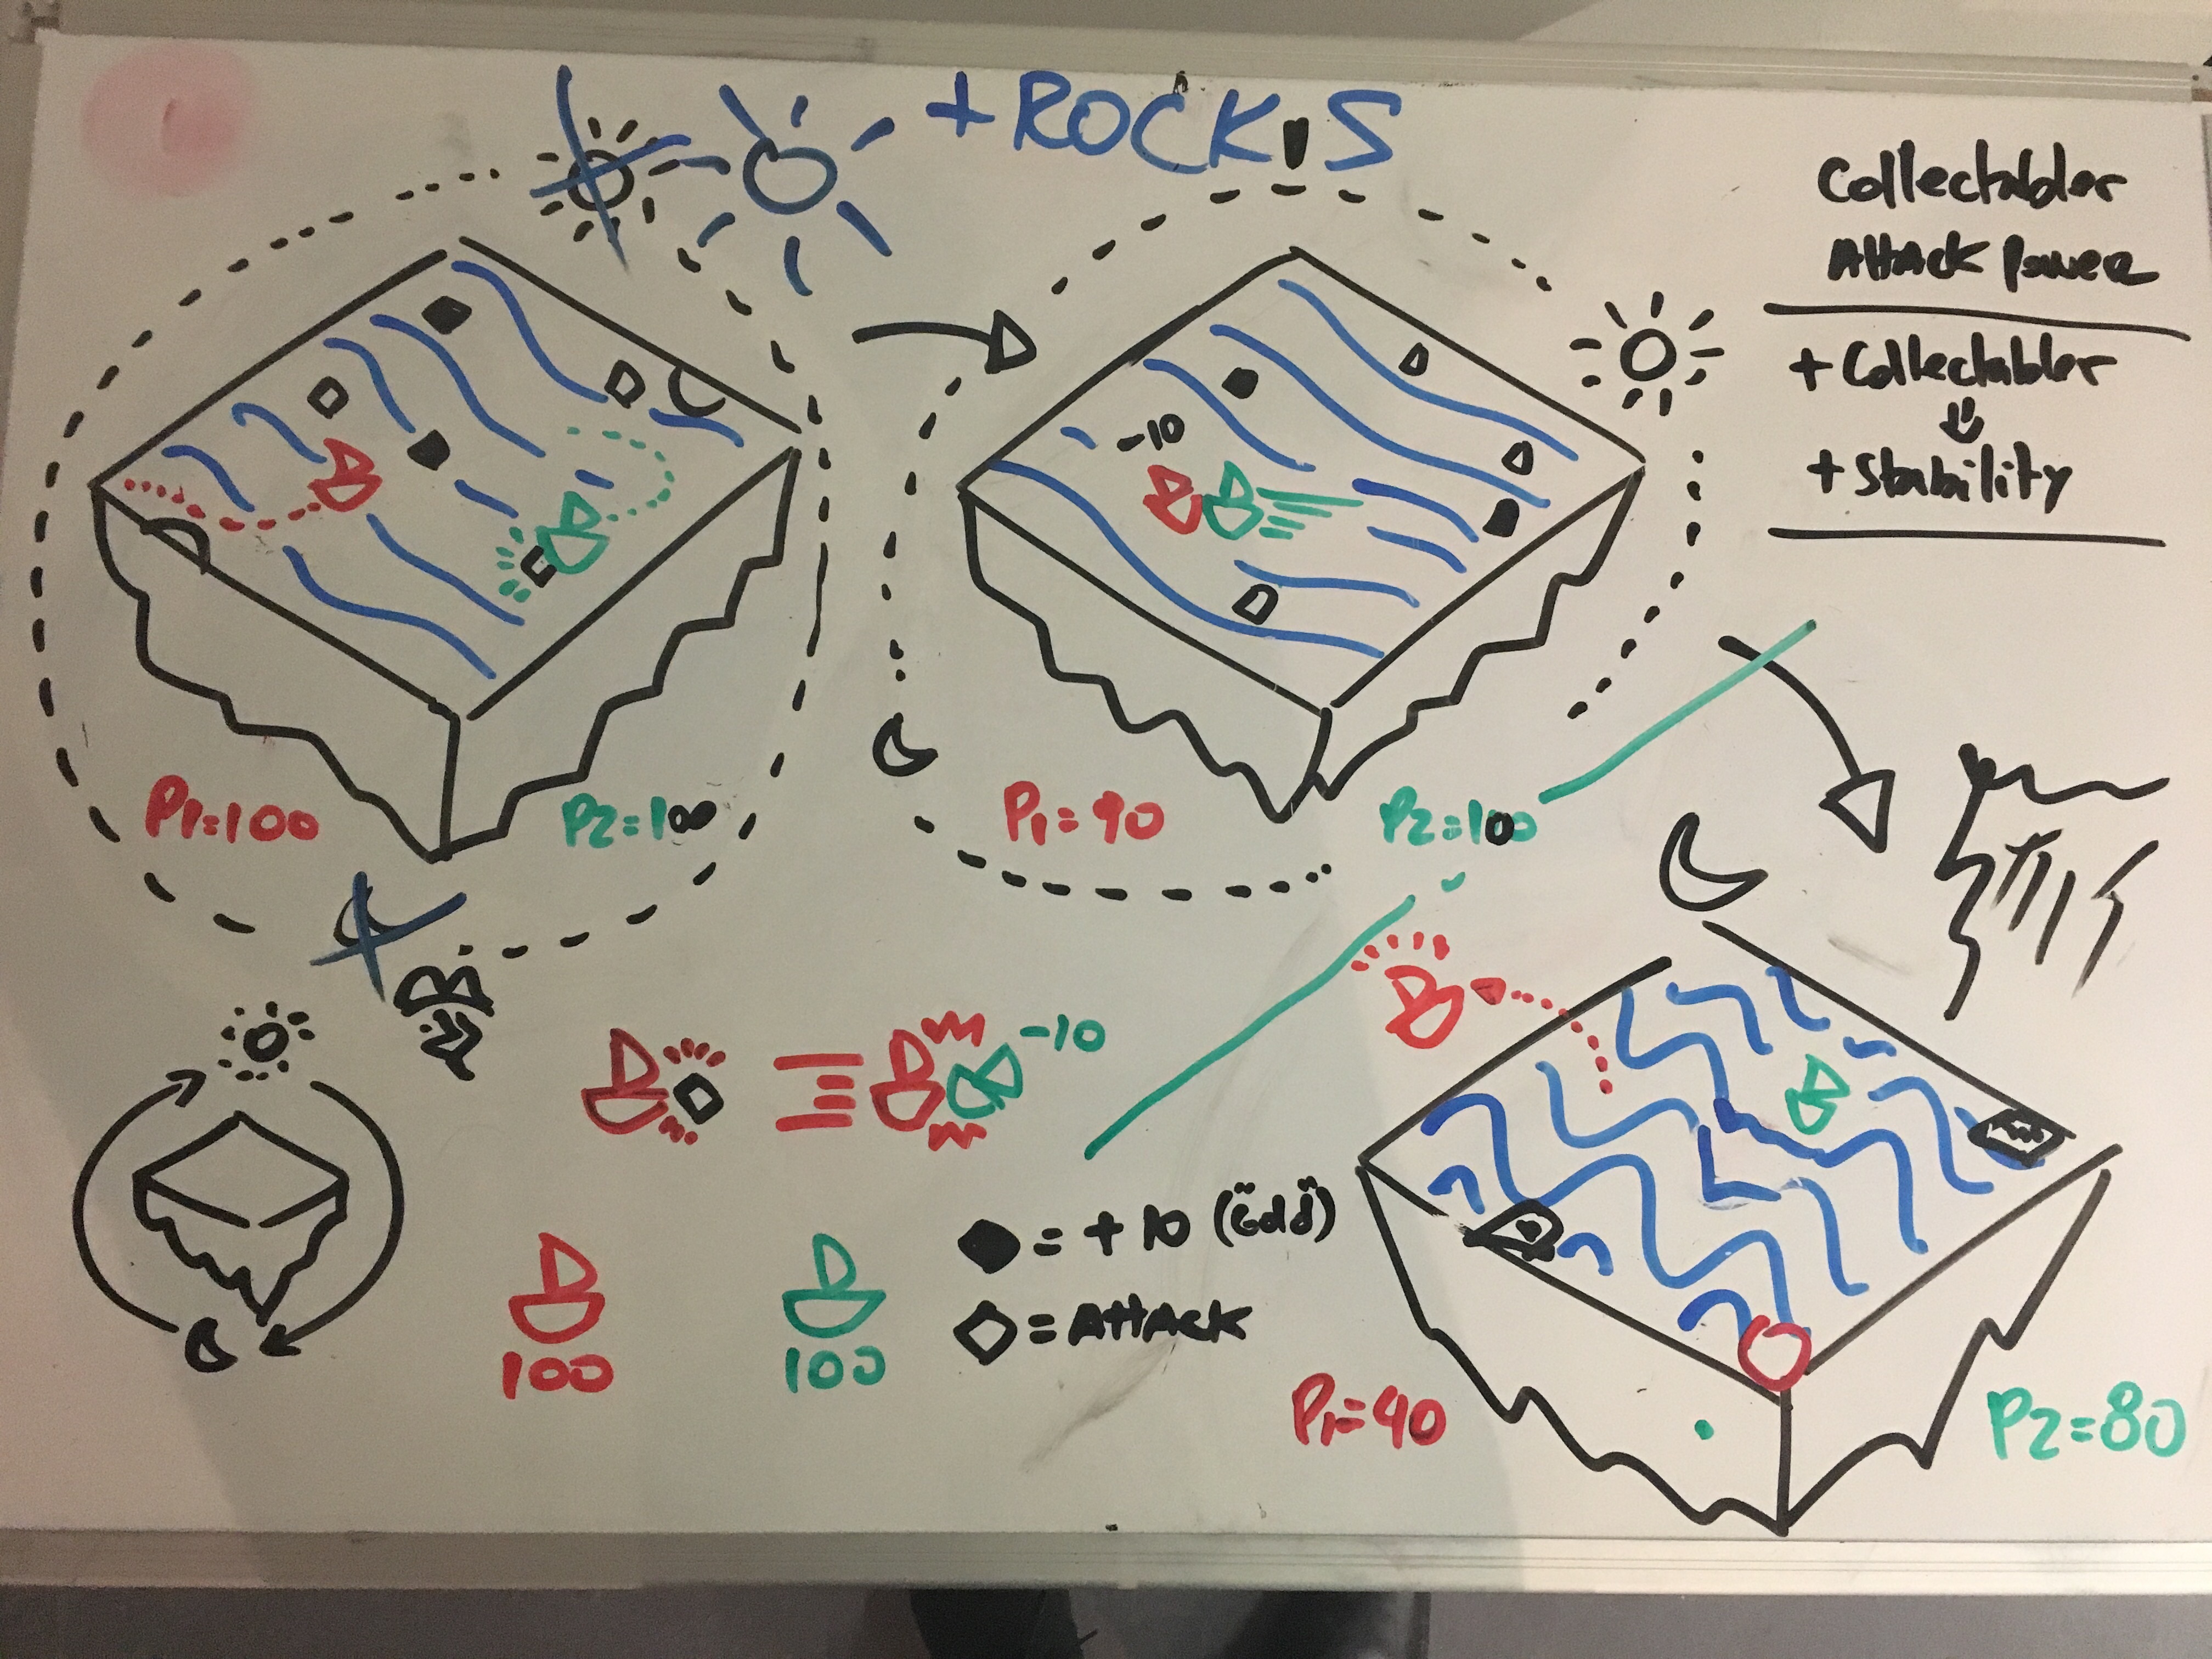 +ROCKS
Collectables
Attack Power
+ Collectables
⇓
+ Stability
-10
P1=100
P2=100
P1=90
P2=100
-10
◆ = +10 ("Gold")
◇ = Attack
100
100
P1=90
P2=80